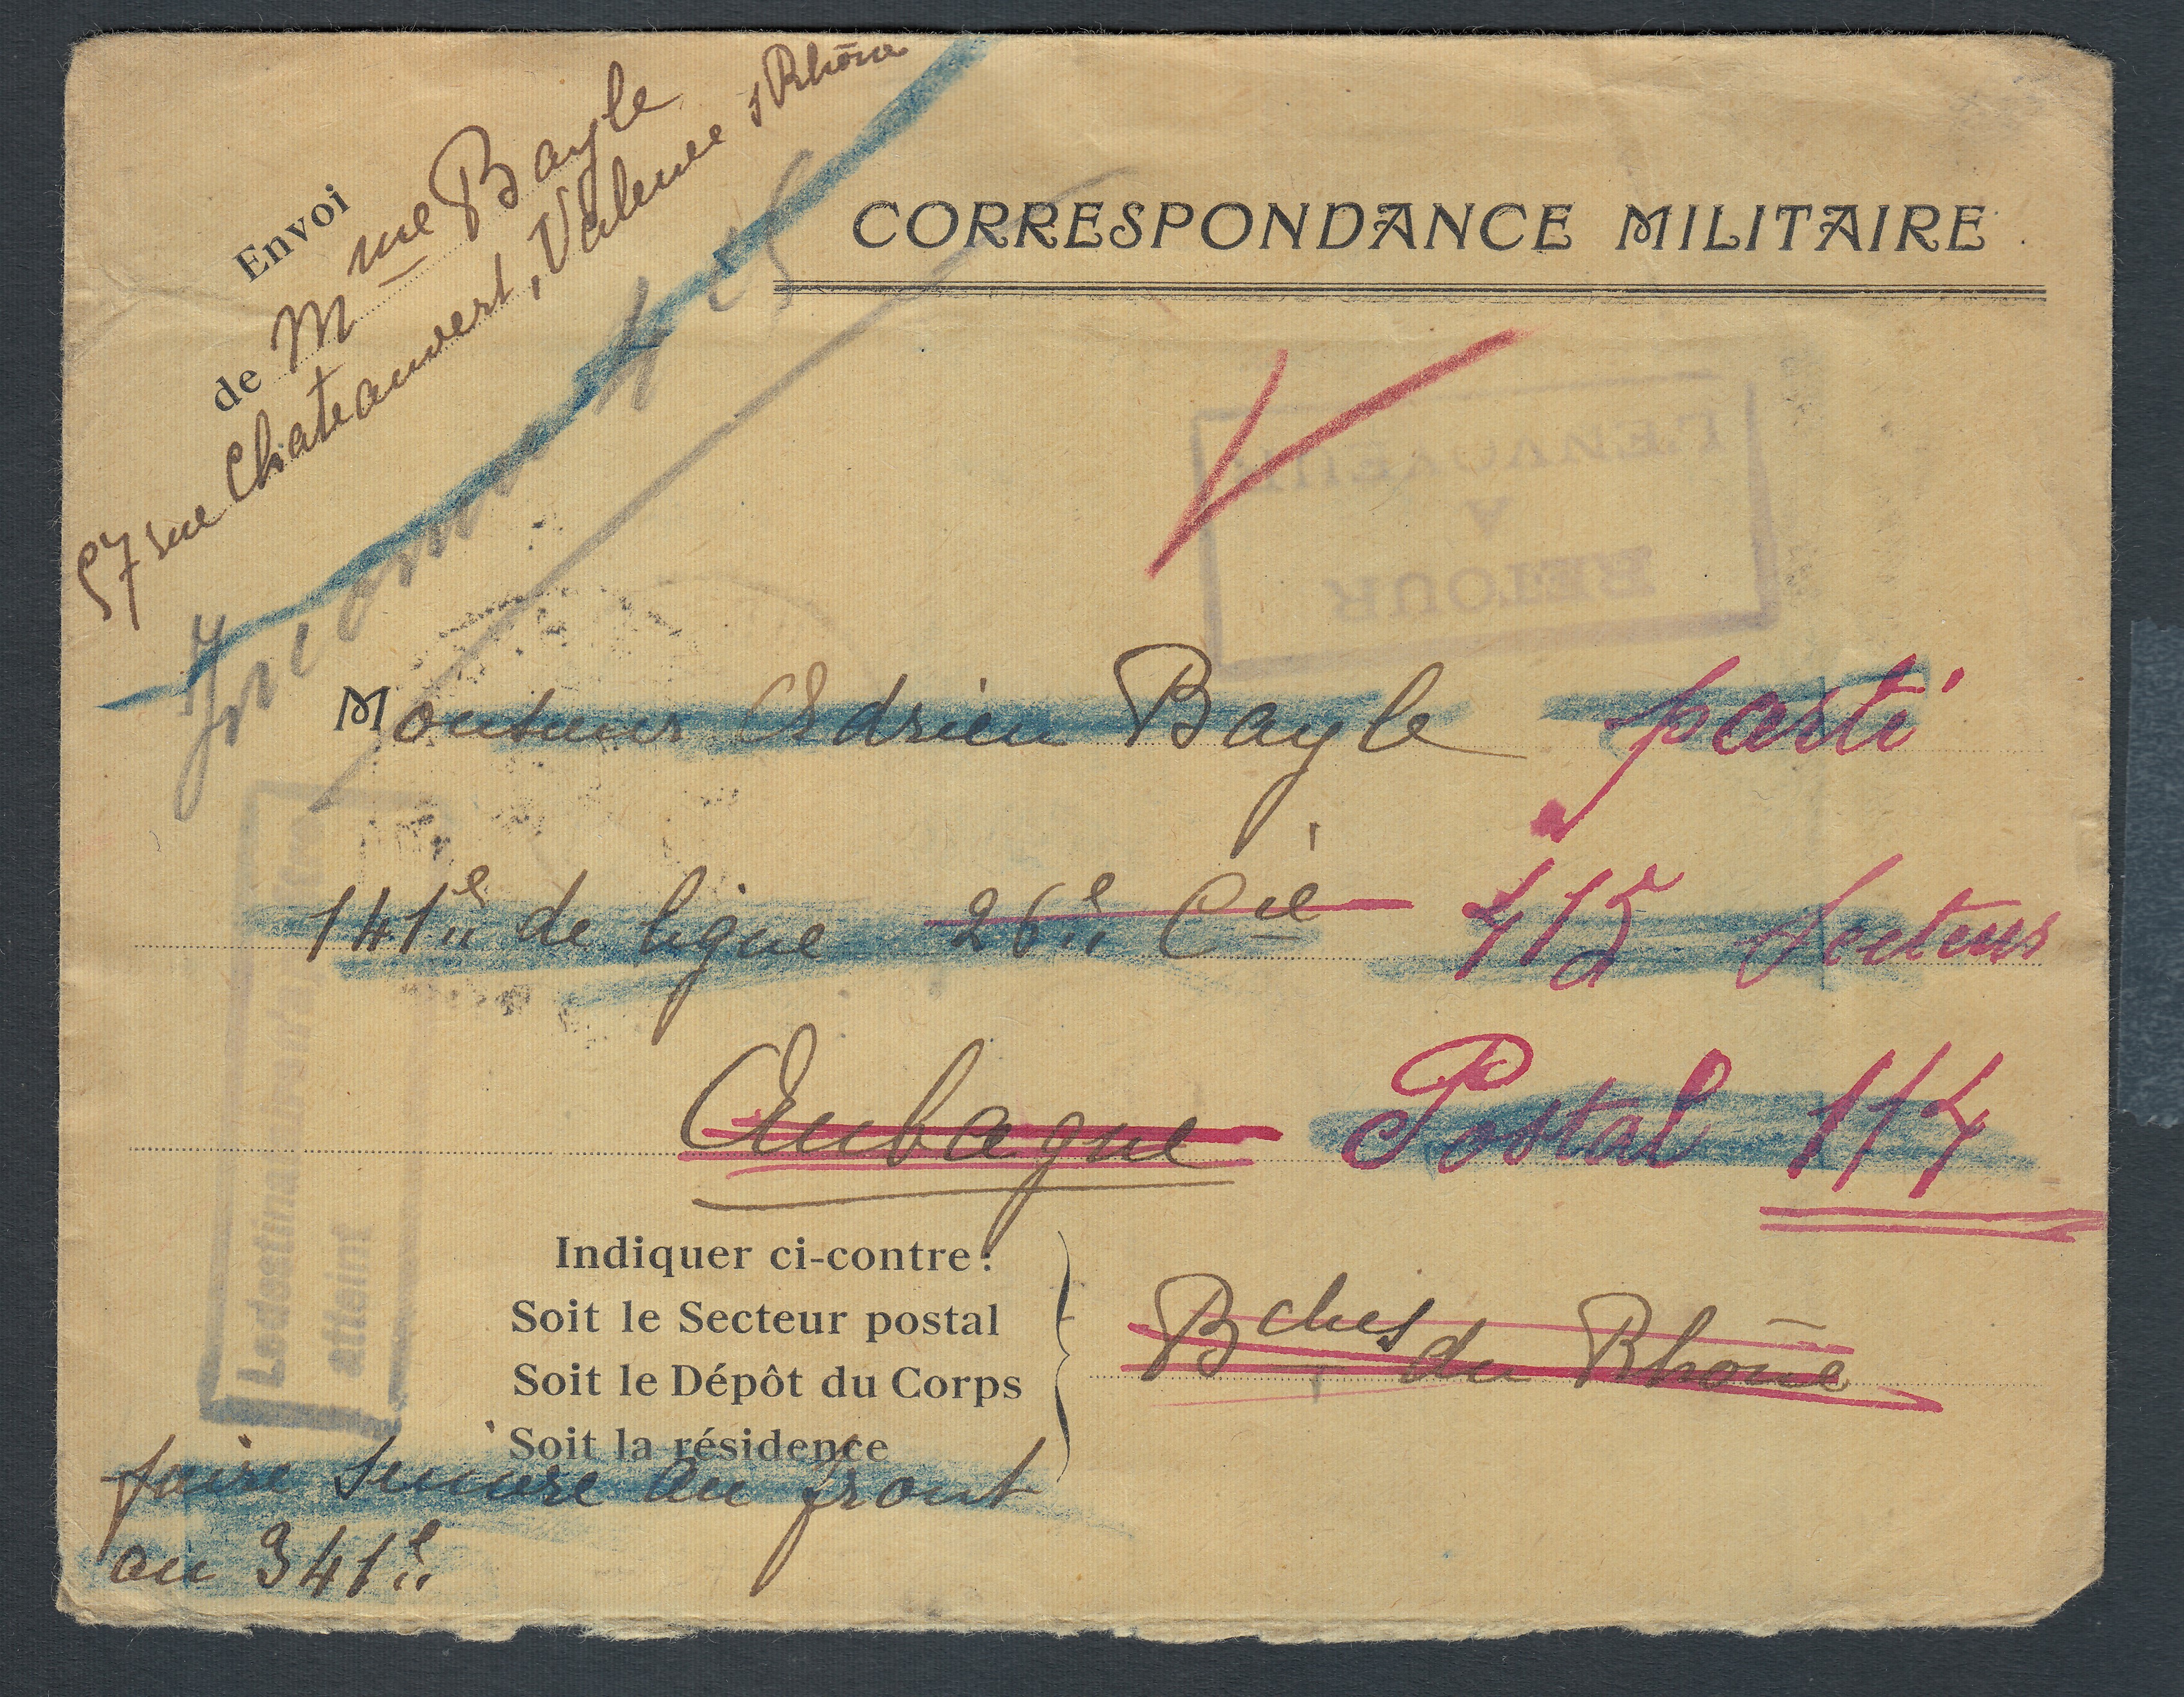 Envoi
de Mme Bayle
57 rue Chateauvert, Valence s Rhône
CORRESPONDANCE MILITAIRE
RETOUR
A
L'ENVOYEUR
Inconnu
Monsieur Adrien Bayle parti
141e de ligne 26e Cie 415 Secteur
Aubagne Postal 114
Le destinataire n'a pu être
atteint
Indiquer ci-contre :
Soit le Secteur postal
Soit le Dépôt du Corps
Soit la résidence
Bches du Rhône
faire suivre au front
au 341e